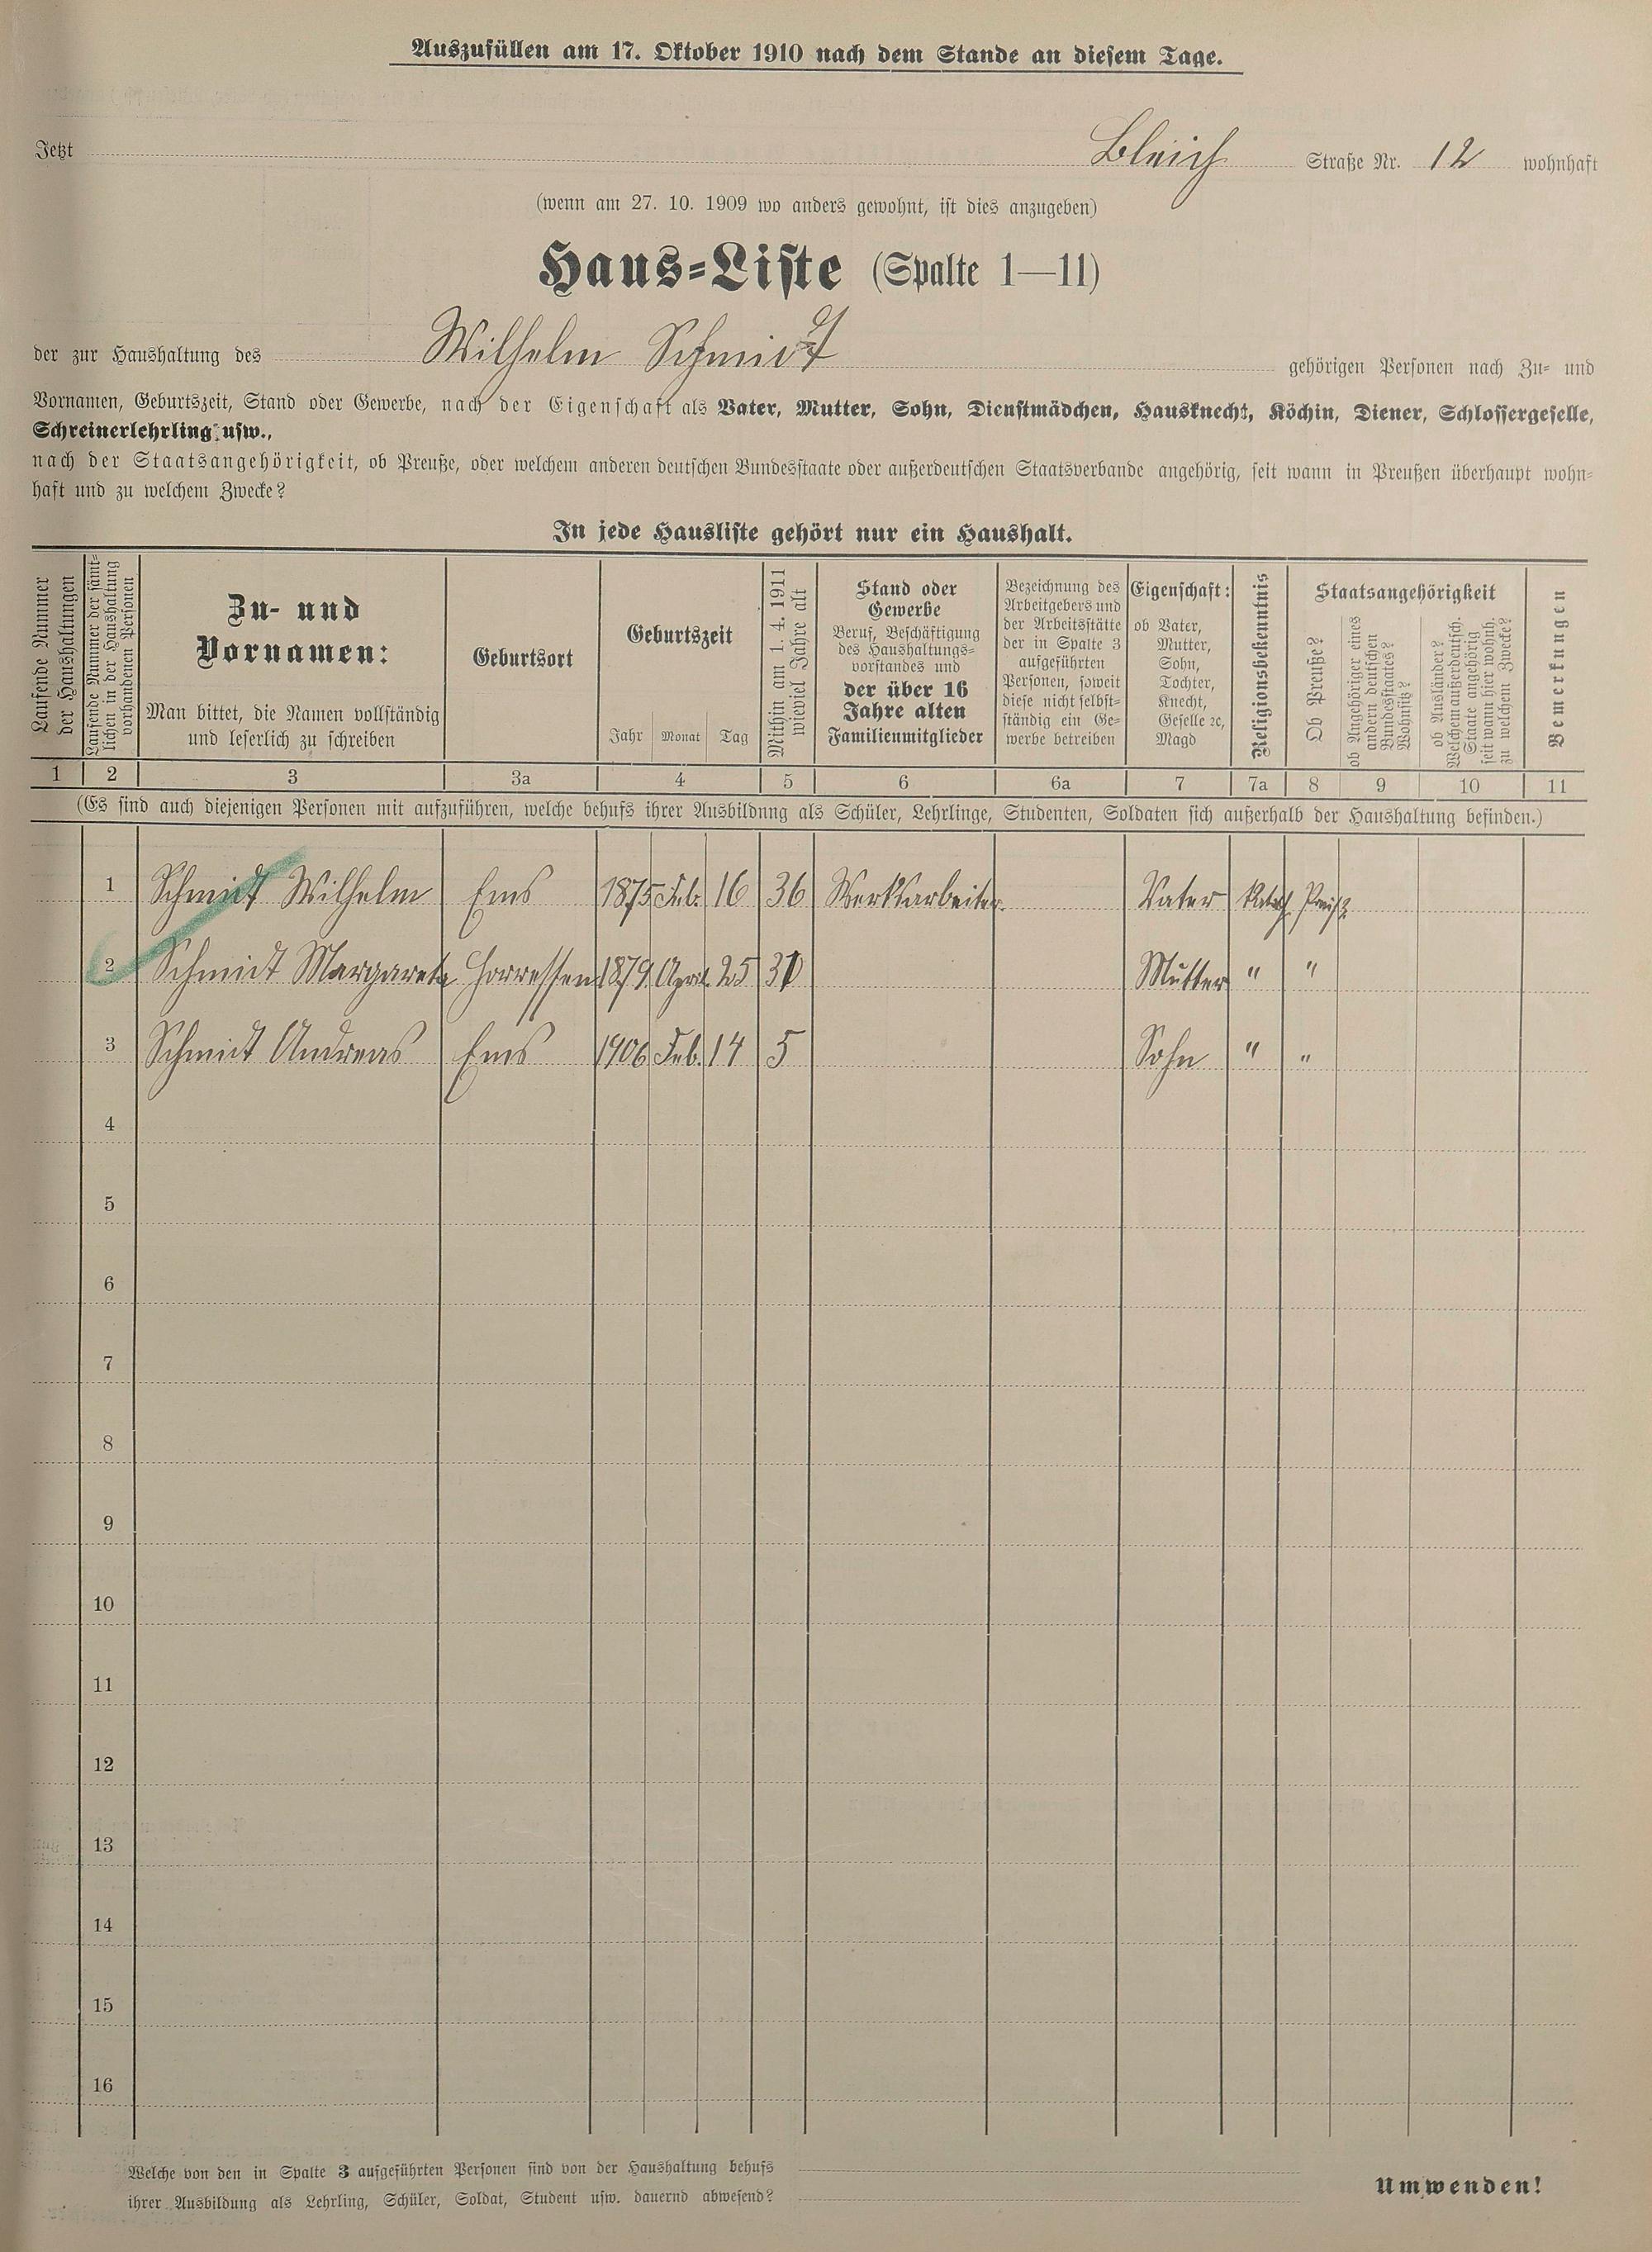 Auszufüllen am 17. Oktober 1910 nach dem Stande an diesem Tage.
Jetzt Bleich Straße Nr. 12 wohnhaft
(wenn am 27. 10. 1909 wo anders gewohnt, ist dies anzugeben)
Haus-Liste (Spalte 1—11)
der zur Haushaltung des Wilhelm Schmidt gehörigen Personen nach Zu- und
Vornamen, Geburtszeit, Stand oder Gewerbe, nach der Eigenschaft als Vater, Mutter, Sohn, Dienstmädchen, Hausknecht, Köchin, Diener, Schlossergeselle,
Schreinerlehrling usw.,
nach der Staatsangehörigkeit, ob Preuße, oder welchem anderen deutschen Bundesstaate oder außerdeutschen Staatsverbande angehörig, seit wann in Preußen überhaupt wohn-
haft und zu welchem Zwecke?
In jede Hausliste gehört nur ein Haushalt.
Laufende Nummer
der Haushaltungen
Laufende Nummer der sämt-
lichen in der Haushaltung
vorhandenen Personen
Zu- und
Vornamen:
Man bittet, die Namen vollständig
und leserlich zu schreiben
Geburtsort
Geburtszeit
Jahr Monat Tag
Mithin am 1. 4. 1911
wieviel Jahre alt
Stand oder
Gewerbe
Beruf, Beschäftigung
des Haushaltungs-
vorstandes und
der über 16
Jahre alten
Familienmitglieder
Bezeichnung des
Arbeitgebers und
der Arbeitsstätte
der in Spalte 3
aufgeführten
Personen, soweit
diese nicht selbst-
ständig ein Ge-
werbe betreiben
Eigenschaft:
ob Vater,
Mutter,
Sohn,
Tochter,
Knecht,
Geselle ꝛc,
Magd
Religionsbekenntnis
Staatsangehörigkeit
Ob Preuße?
ob Angehöriger eines
andern deutschen
Bundesstaates?
Wohnsitz?
ob Ausländer?
Welchem außerdeutsch.
Staate angehörig
seit wann hier wohnh.
zu welchem Zwecke?
Bemerkungen
1 2 3 3a 4 5 6 6a 7 7a 8 9 10 11
(Es sind auch diejenigen Personen mit aufzuführen, welche behufs ihrer Ausbildung als Schüler, Lehrlinge, Studenten, Soldaten sich außerhalb der Haushaltung befinden.)
1 Schmidt Wilhelm Ems 1875 Feb. 16 36 Werksarbeiter. Vater Kath. Preuß.
2 Schmidt Margareta Horressen 1879 April 25 31 Mutter " "
3 Schmidt Andreas Ems 1906 Feb. 14 5 Sohn " "
4
5
6
7
8
9
10
11
12
13
14
15
16
Welche von den in Spalte 3 aufgeführten Personen sind von der Haushaltung behufs
ihrer Ausbildung als Lehrling, Schüler, Soldat, Student usw. dauernd abwesend?
Umwenden!